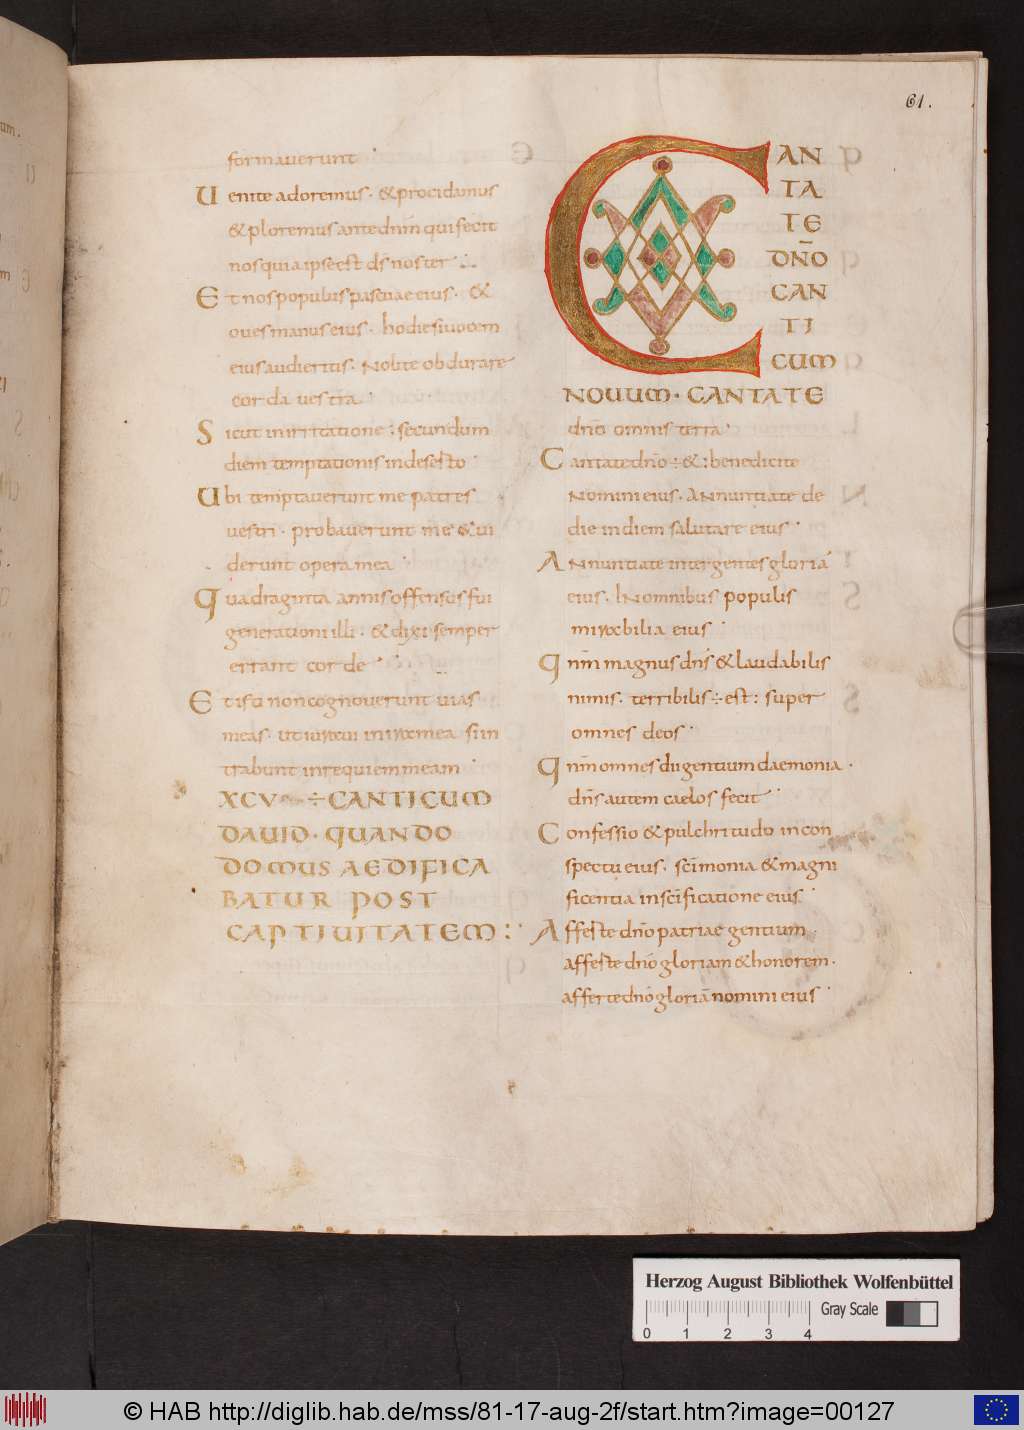 61.
formaverunt
Uenite adoremus. & procidamus
& ploremus ante dn̄m qui fecit
nos quia ipse est ds noster
Et nos populus pascuae eius. &
oues manus eius. hodie si uocem
eius audieritis. Nolite obdurare
corda uestra.
Sicut in irritatione: secundum
diem temptationis in deserto
Ubi temptaverunt me patres
vestri. probaverunt me & ui
derunt opera mea
Quadraginta annis offensus fui
generationi illi. & dixi semper
errant corde
Et isti non cognoverunt uias
meas. ut iuraui in ira mea si in
trabunt in requiem meam
XCV ÷ CANTICUM
DAUID. QUANDO
DOMUS AEDIFICA
BATUR POST
CAPTIUITATEM:
CAN
TA
TE
DÑO
CAN
TI
CUM
NOUUM. CANTATE
dnō omnis terra.
Cantate dnō ÷ & : benedicite
Nomini eius. ANnuntiate de
die in diem salutare eius
ANnuntiate inter gentes gloriā
eius. IN omnibus populis
mirabilia eius
Qnm̄ magnus dn̄s & laudabilis
nimis. terribilis ÷ est: super
omnes deos
Qnm̄ omnes dii gentium daemonia.
dn̄s autem caelos fecit
Confessio & pulchritudo in con
spectu eius. scīmonia & magni
ficentia in scīficatione eius
Afferte dnō patriae gentium.
afferte dnō gloriam & honorem.
afferte dnō gloriā nomini eius
Herzog August Bibliothek Wolfenbüttel
Gray Scale
0 1 2 3 4
© HAB http://diglib.hab.de/mss/81-17-aug-2f/start.htm?image=00127